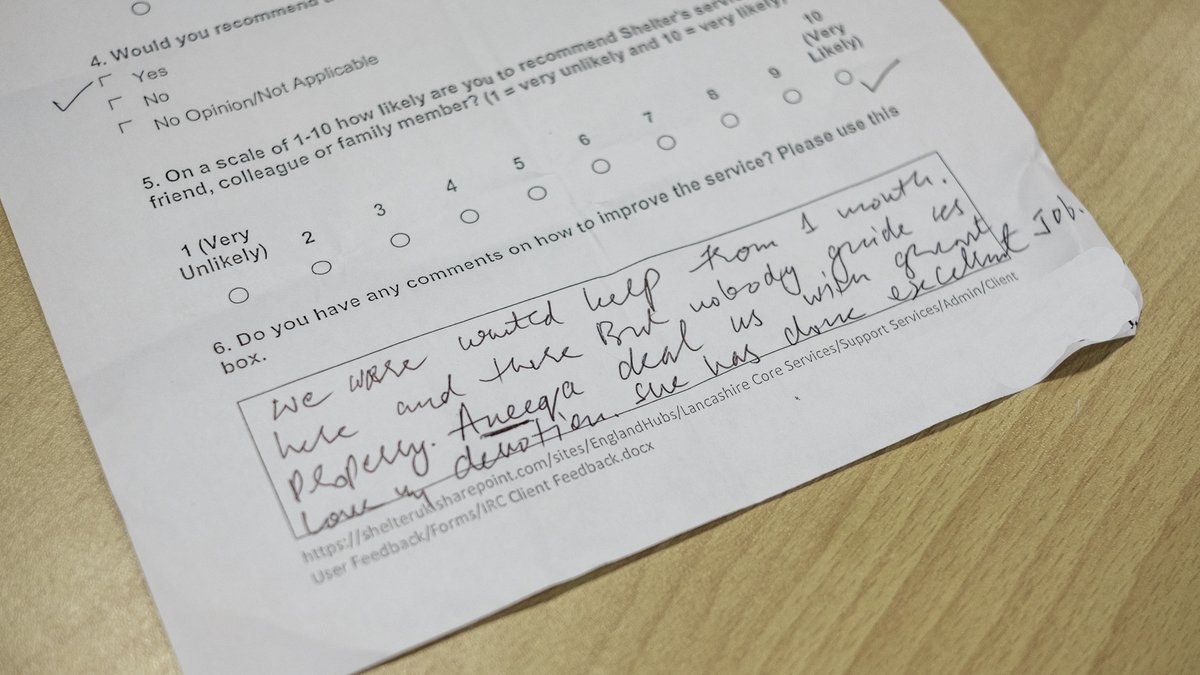 4. Would you recommend
Yes
No
No Opinion/Not Applicable
5. On a scale of 1-10 how likely are you to recommend Shelter's
friend, colleague or family member? (1 = very unlikely and 10 = very likely)
1 (Very Unlikely) 2 3 4 5 6 7 8 9 10 (Very Likely)
6. Do you have any comments on how to improve the service? Please use this
box.
we were wanted help from 1 month.
here and there But nobody guide us
properly. Aneeqa deal us with great
love devotion. she has done excellent Job.
https://shelteruk.sharepoint.com/sites/EnglandHubs/Lancashire Core Services/Support Services/Admin/Client
User Feedback/Forms/IRC Client Feedback.docx